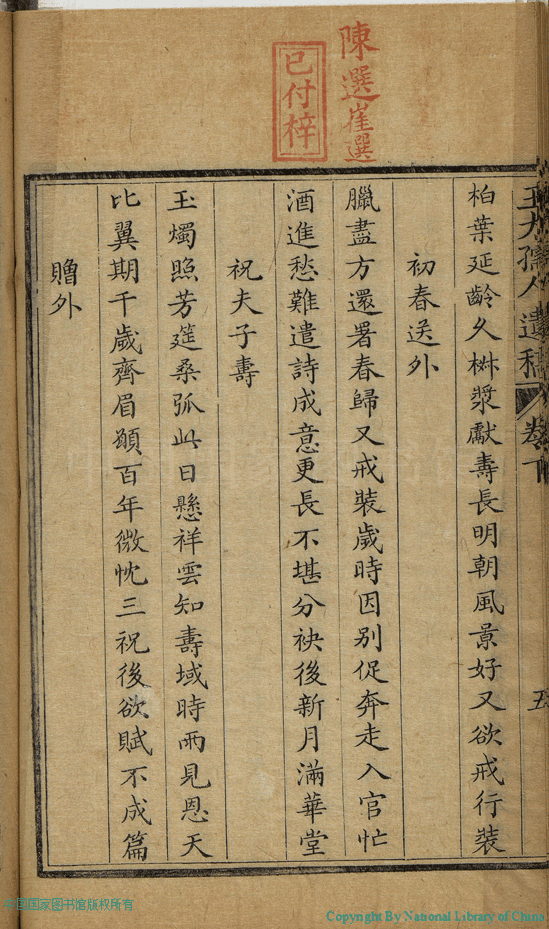 陳選崔選
已付梓
王大孺人遺稿 卷下 五
柏葉延齡久椒漿獻壽長明朝風景好又欲戒行裝
初春送外
臘盡方還署春歸又戒裝歲時因別促奔走入官忙
酒進愁難遣詩成意更長不堪分袂後新月滿華堂
祝夫子壽
玉燭照芳筵桑弧此日懸祥雲知壽域時雨見恩天
比翼期千歲齊眉願百年微忱三祝後欲賦不成篇
贈外
中国国家图书馆版权所有
Copyright By National Library of China